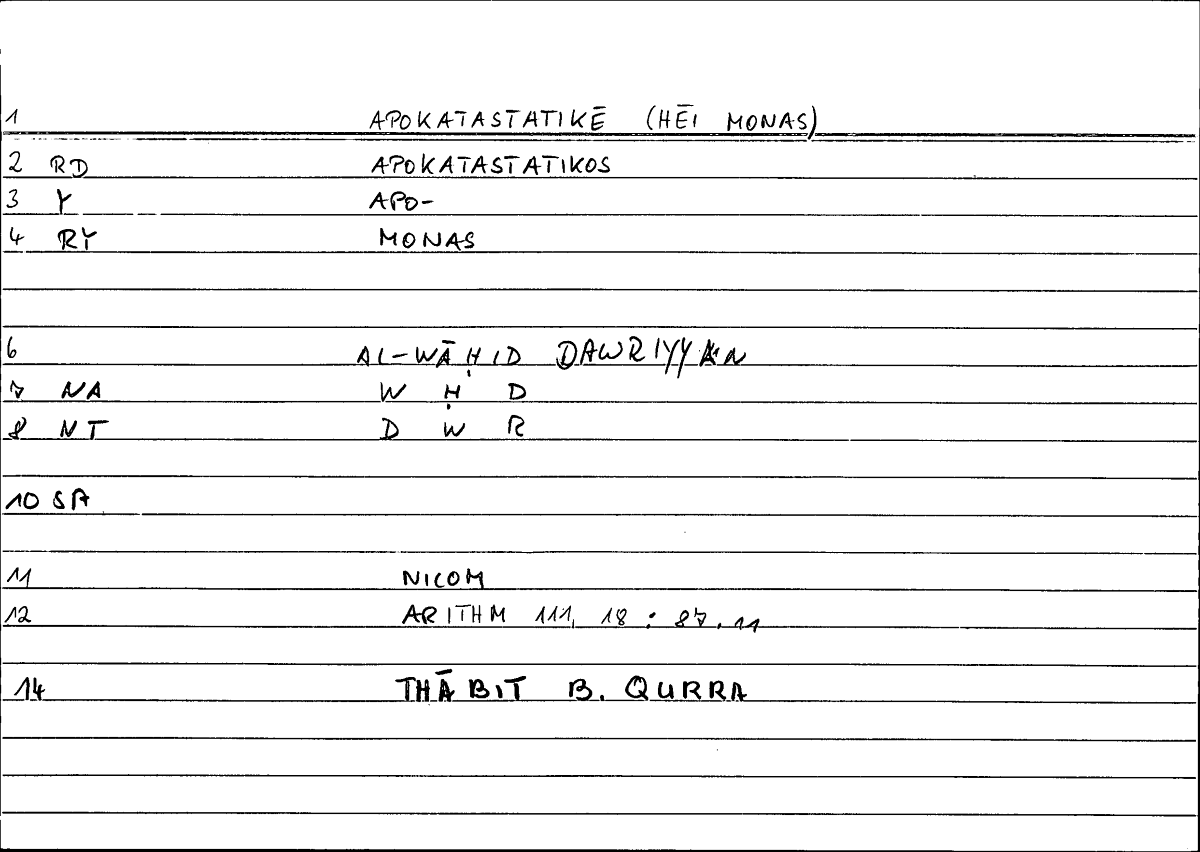 1 APOKATASTATIKĒ (HĒI MONAS)
2 RD APOKATASTATIKOS
3 Y APO-
4 RY MONAS
6 AL-WĀḤID DAWRIYYAN
7 NA W Ḥ D
8 NT D W R
10 SA
11 NICOM
12 ARITHM 111, 18 : 87, 11
14 THĀBIT B. QURRA